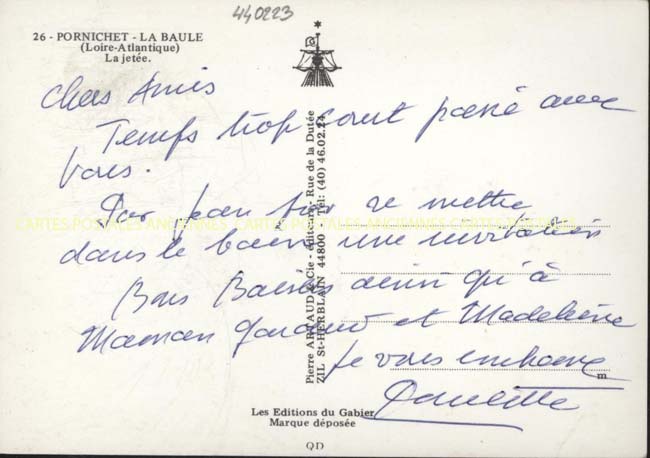 440223
26 - PORNICHET - LA BAULE
(Loire-Atlantique)
La jetée.
Chers Amis
Temps trop court passé avec
vous.
Par pour se mettre
dans le bain une invitation
Bons Baisers ainsi qu'à
Maman et Madeleine
Je vous embrasse
Danielle
Pierre ARTAUD & Cie - éditeurs - Rue de la Dutée
ZIL St-HERBLAIN 44800 - Tél: (40) 46.02.24
CARTES POSTALES ANCIENNES CARTES POSTALES ANCIENNES CARTES POSTALES
m
Les Editions du Gabier
Marque déposée
QD